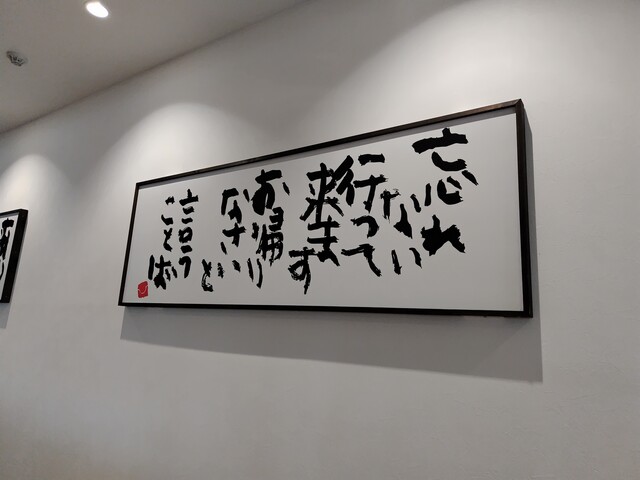 忘れ
ない
行って
来ます
お帰り
なさいと
言う
ことば